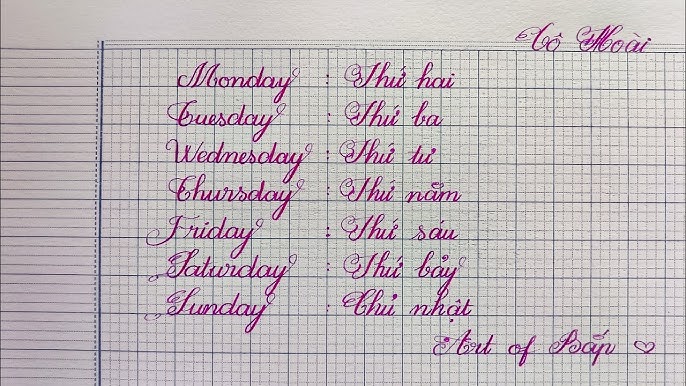 Tô Hoài
Monday : Thứ hai
Tuesday : Thứ ba
Wednesday : Thứ tư
Thursday : Thứ năm
Friday : Thứ sáu
Saturday : Thứ bảy
Sunday : Chủ nhật
Art of Bắp